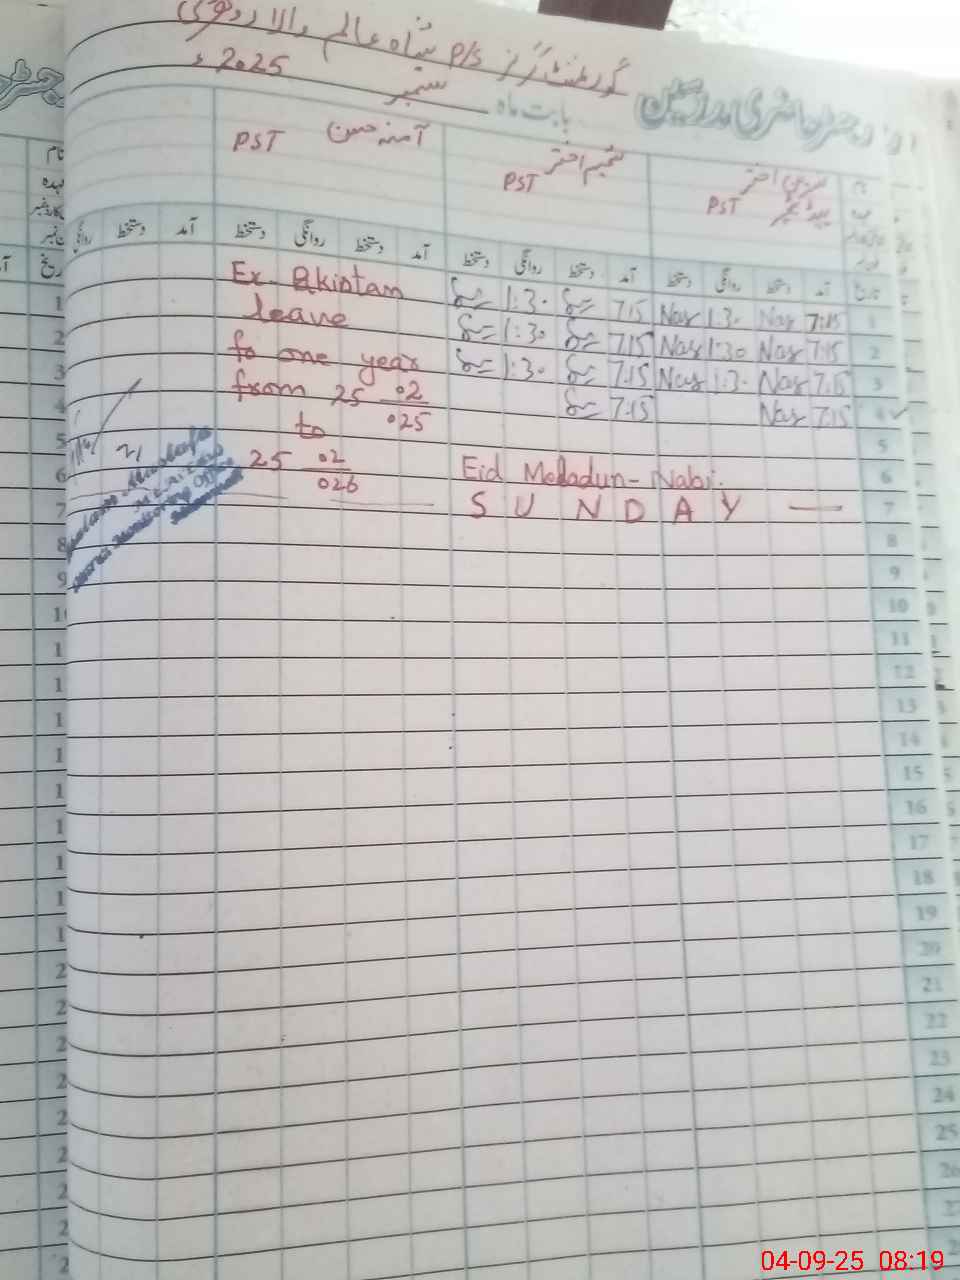 گورنمنٹ گرلز P/S شاہ عالم والا
رجسٹر حاضری مدرسین
بابت ماہ ستمبر 2025ء
نام
نسرین اختر
شمیم اختر
آمنہ حسن
ہیڈ ٹیچر PST
PST
PST
تاریخ آمد دستخط روانگی دستخط آمد دستخط روانگی دستخط آمد دستخط روانگی دستخط آمد دستخط روانگی
1 7:15 Nas 1:30 Nas 7:15 1:30
2 7:15 Nas 1:30 Nas 7:15 1:30
3 7:15 Nas 1:30 Nas 7:15 1:30
4 7:15 Nas 7:15
5
6 Eid Meladun-Nabi.
7 SUNDAY
Ex. Pakistan
leave
fo one year
from 25 02
025
to
25 02
026
8
9
10
11
12
13
14
15
16
17
18
19
20
21
22
23
24
25
26
27
04-09-25 08:19